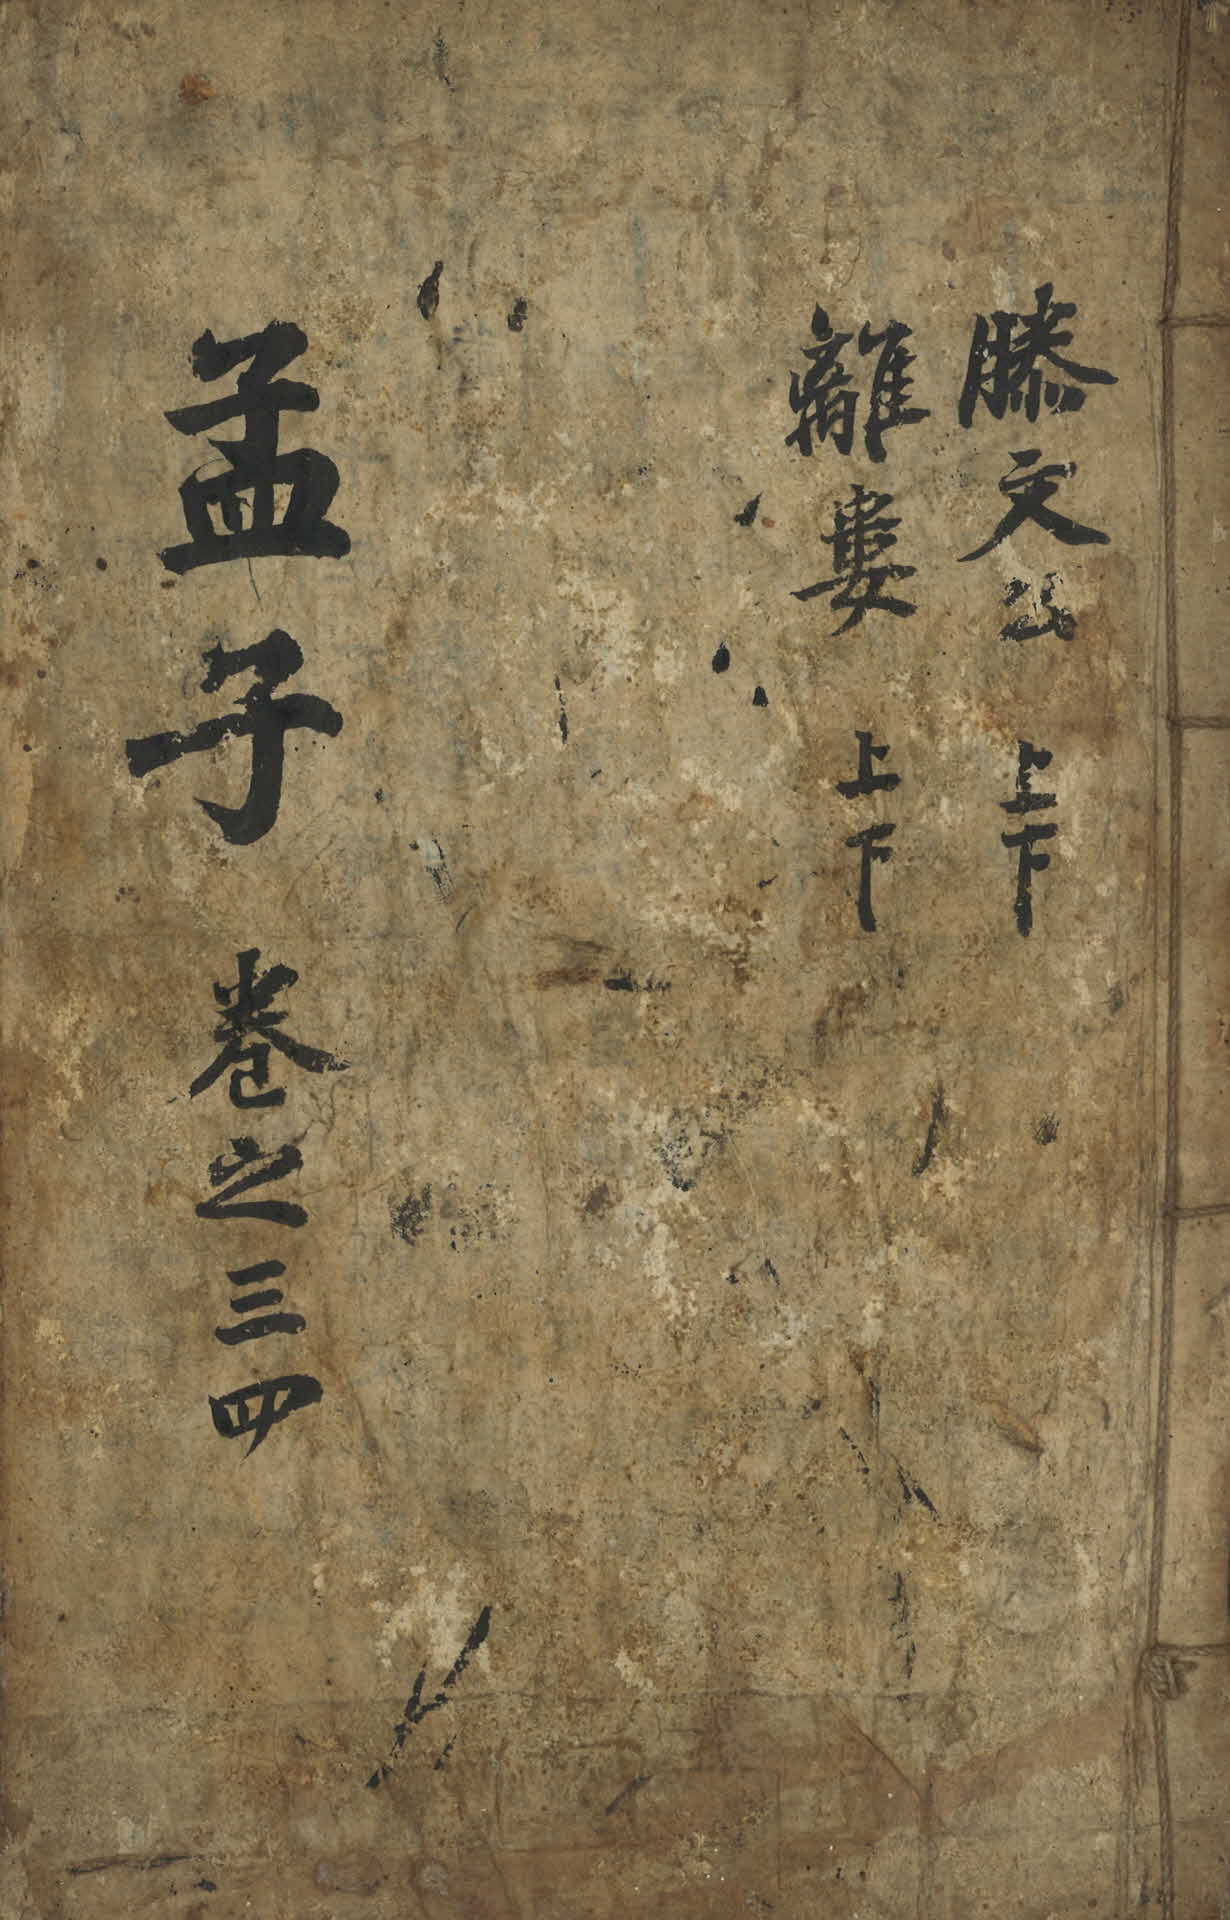 滕文公 上下
離婁 上下
孟子 卷之三四